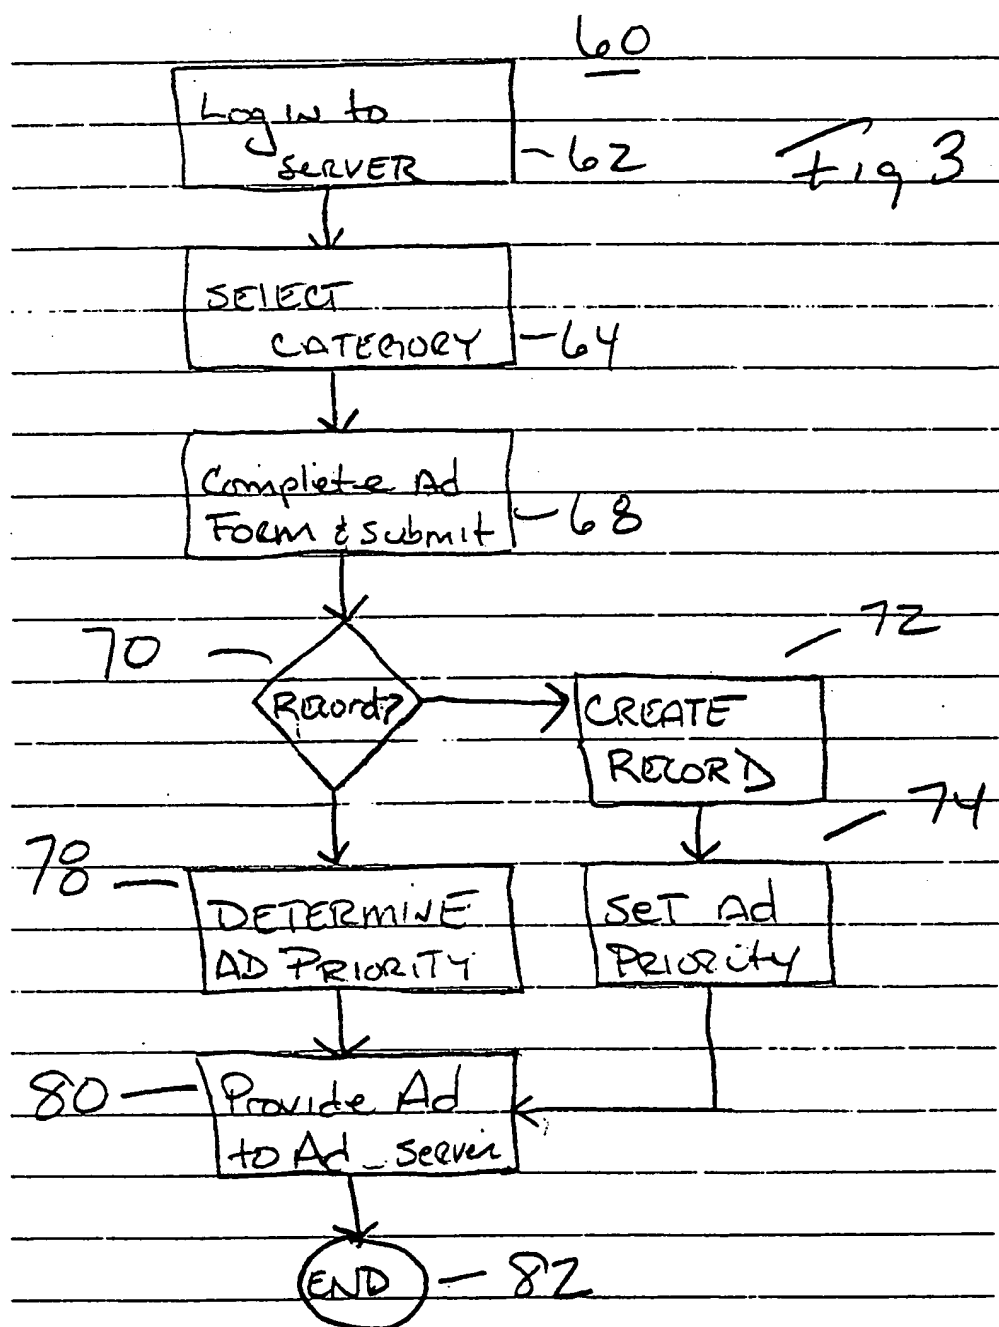 60
Log in to
SERVER
-62
Fig 3
SELECT
CATEGORY
-64
Complete Ad
Form & submit
-68
70
Record?
72
CREATE
RECORD
74
78
DETERMINE
AD PRIORITY
SET Ad
PRIORITY
80
Provide Ad
to Ad_Server
END
-82